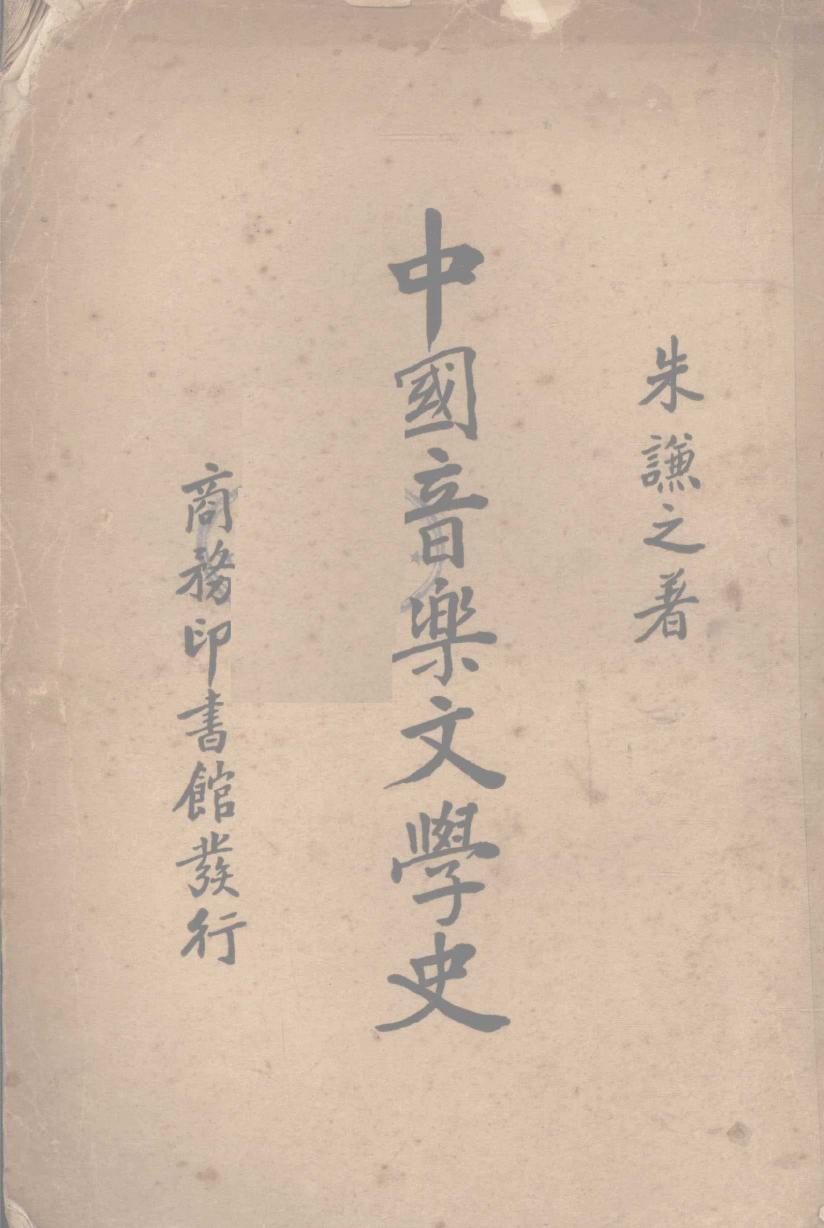 朱謙之著
中國音樂文學史
商務印書館發行